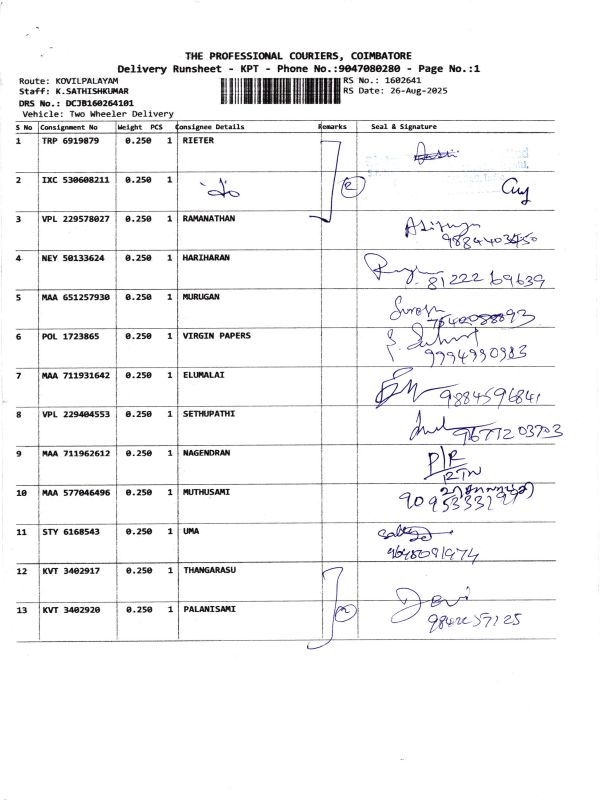 THE PROFESSIONAL COURIERS, COIMBATORE
Delivery Runsheet - KPT - Phone No.:9047080280 - Page No.:1
Route: KOVILPALAYAM RS No.: 1602641
Staff: K.SATHISHKUMAR RS Date: 26-Aug-2025
DRS No.: DCJB160264101
Vehicle: Two Wheeler Delivery
S No Consignment No Weight PCS Consignee Details Remarks Seal & Signature
1 TRP 6919879 0.250 1 RIETER
2 IXC 530608211 0.250 1 2
3 VPL 229578027 0.250 1 RAMANATHAN
4 NEY 50133624 0.250 1 HARIHARAN
81222 69639
5 MAA 651257930 0.250 1 MURUGAN
6 POL 1723865 0.250 1 VIRGIN PAPERS
9994990983
7 MAA 711931642 0.250 1 ELUMALAI
9884596841
8 VPL 229404553 0.250 1 SETHUPATHI
9677203703
9 MAA 711962612 0.250 1 NAGENDRAN P/R
RTN
10 MAA 577046496 0.250 1 MUTHUSAMI
11 STY 6168543 0.250 1 UMA
12 KVT 3402917 0.250 1 THANGARASU
13 KVT 3402920 0.250 1 PALANISAMI 2 Devi